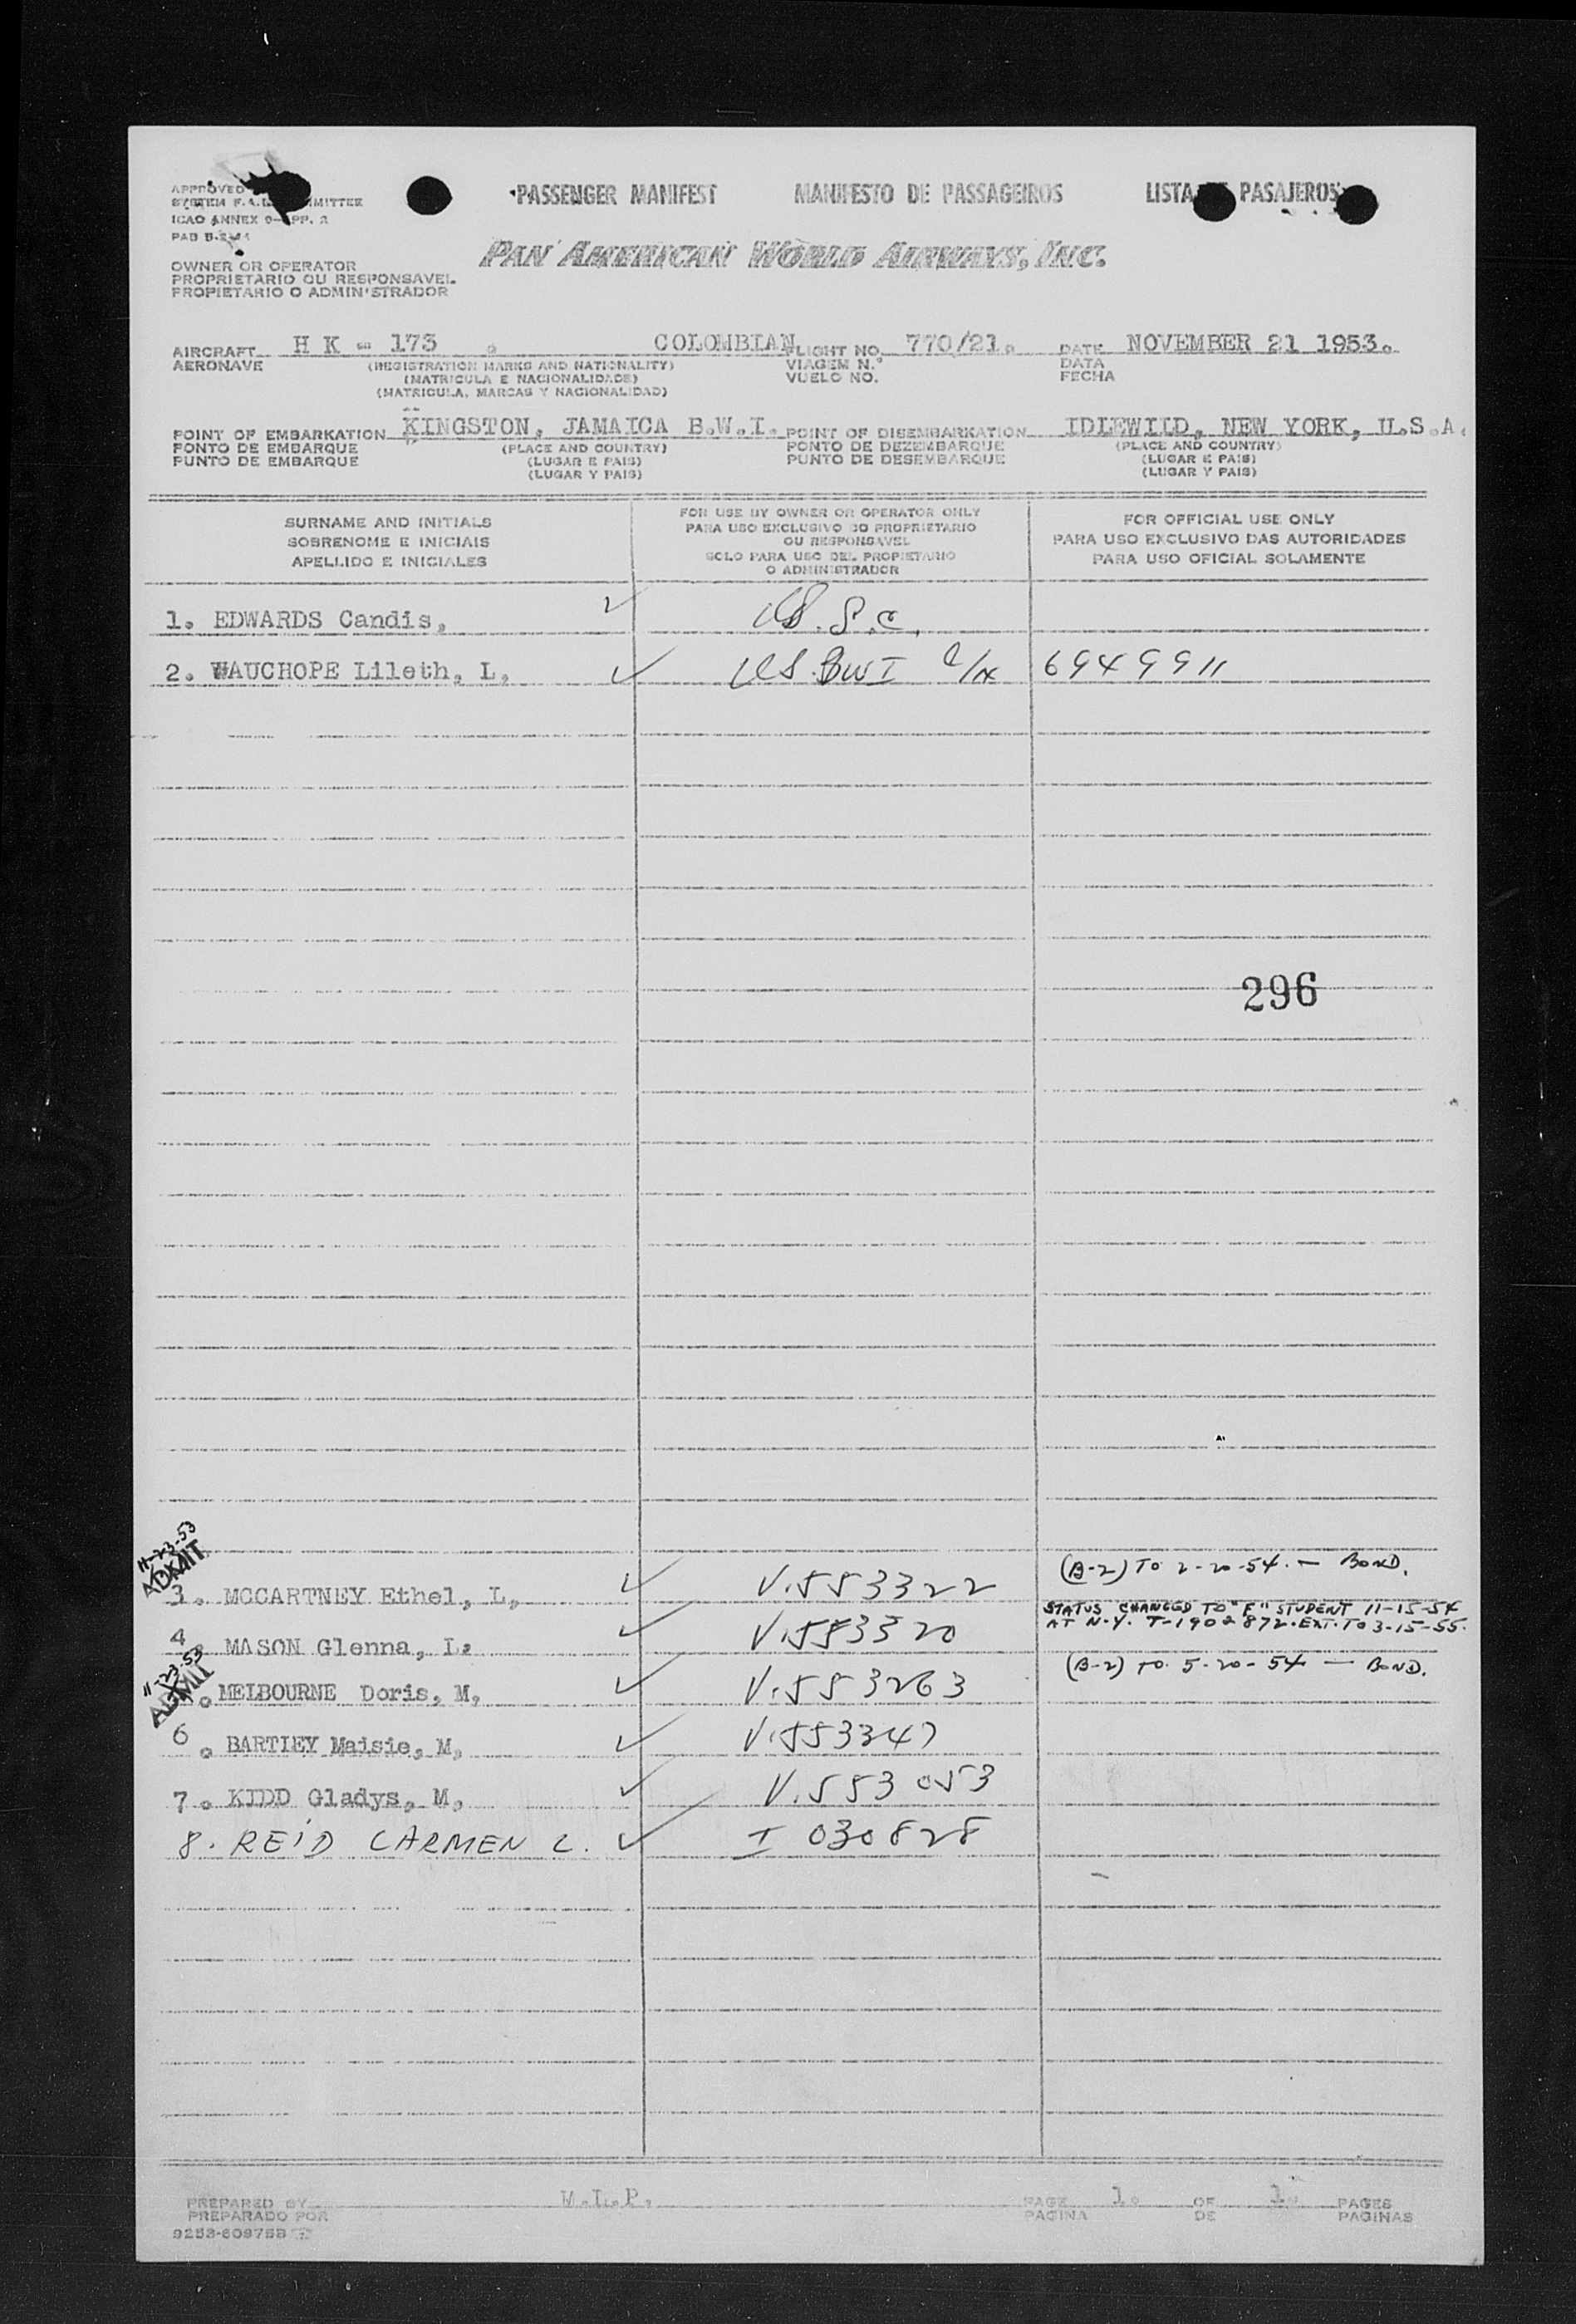 PASSENGER MANIFEST MANIFESTO DE PASSAGEIROS LISTA PASAJEROS
APPROVED
SYSTEM F.A.L. MITTEE
ICAO ANNEX 9- PP. 2
PAN AMERICAN WORLD AIRWAYS, INC.
OWNER OR OPERATOR
PROPRIETARIO OU RESPONSAVEL
PROPIETARIO O ADMINISTRADOR
AIRCRAFT H K - 173 . COLOMBIAN FLIGHT NO. 770/21. DATE NOVEMBER 21 1953.
AERONAVE (REGISTRATION MARKS AND NATIONALITY) VIAGEM N.º DATA
(MATRICULA E NACIONALIDADE) VUELO NO. FECHA
(MATRICULA, MARCAS Y NACIONALIDAD)
POINT OF EMBARKATION KINGSTON, JAMAICA B.W.I. POINT OF DISEMBARKATION IDLEWILD, NEW YORK, U.S.A.
PONTO DE EMBARQUE (PLACE AND COUNTRY) PONTO DE DEZEMBARQUE (PLACE AND COUNTRY)
PUNTO DE EMBARQUE (LUGAR E PAIS) PUNTO DE DESEMBARQUE (LUGAR E PAIS)
(LUGAR Y PAIS) (LUGAR Y PAIS)
SURNAME AND INITIALS
SOBRENOME E INICIAIS
APELLIDO E INICIALES
FOR USE BY OWNER OR OPERATOR ONLY
PARA USO EXCLUSIVO DO PROPRIETARIO
OU RESPONSAVEL
SOLO PARA USO DEL PROPIETARIO
O ADMINISTRADOR
FOR OFFICIAL USE ONLY
PARA USO EXCLUSIVO DAS AUTORIDADES
PARA USO OFICIAL SOLAMENTE
1. EDWARDS Candis, ✓ U.S.C.
2. WAUCHOPE Lileth, L, ✓ US.BWI 6949911
296
11-23-53
ADMIT
(B-2) TO 2-20-54. — BOND.
3. MCCARTNEY Ethel, L, ✓ V.553322
STATUS CHANGED TO "F" STUDENT 11-15-54
AT N.Y. T-1902872. EXT. TO 3-15-55.
4. MASON Glenna, L. ✓ V.553320
11-23-53
ADMIT
(B-2) TO 5-20-54 — BOND.
. MELBOURNE Doris, M, ✓ V.553263
6 . BARTLEY Maisie, M, ✓ V.553347
7 . KIDD Gladys, M, ✓ V.553053
8. REID CARMEN C. ✓ I 030828
PREPARED BY W.L.P. PAGE 1. OF 1. PAGES
PREPARADO POR PAGINA DE PAGINAS
9253-60975B